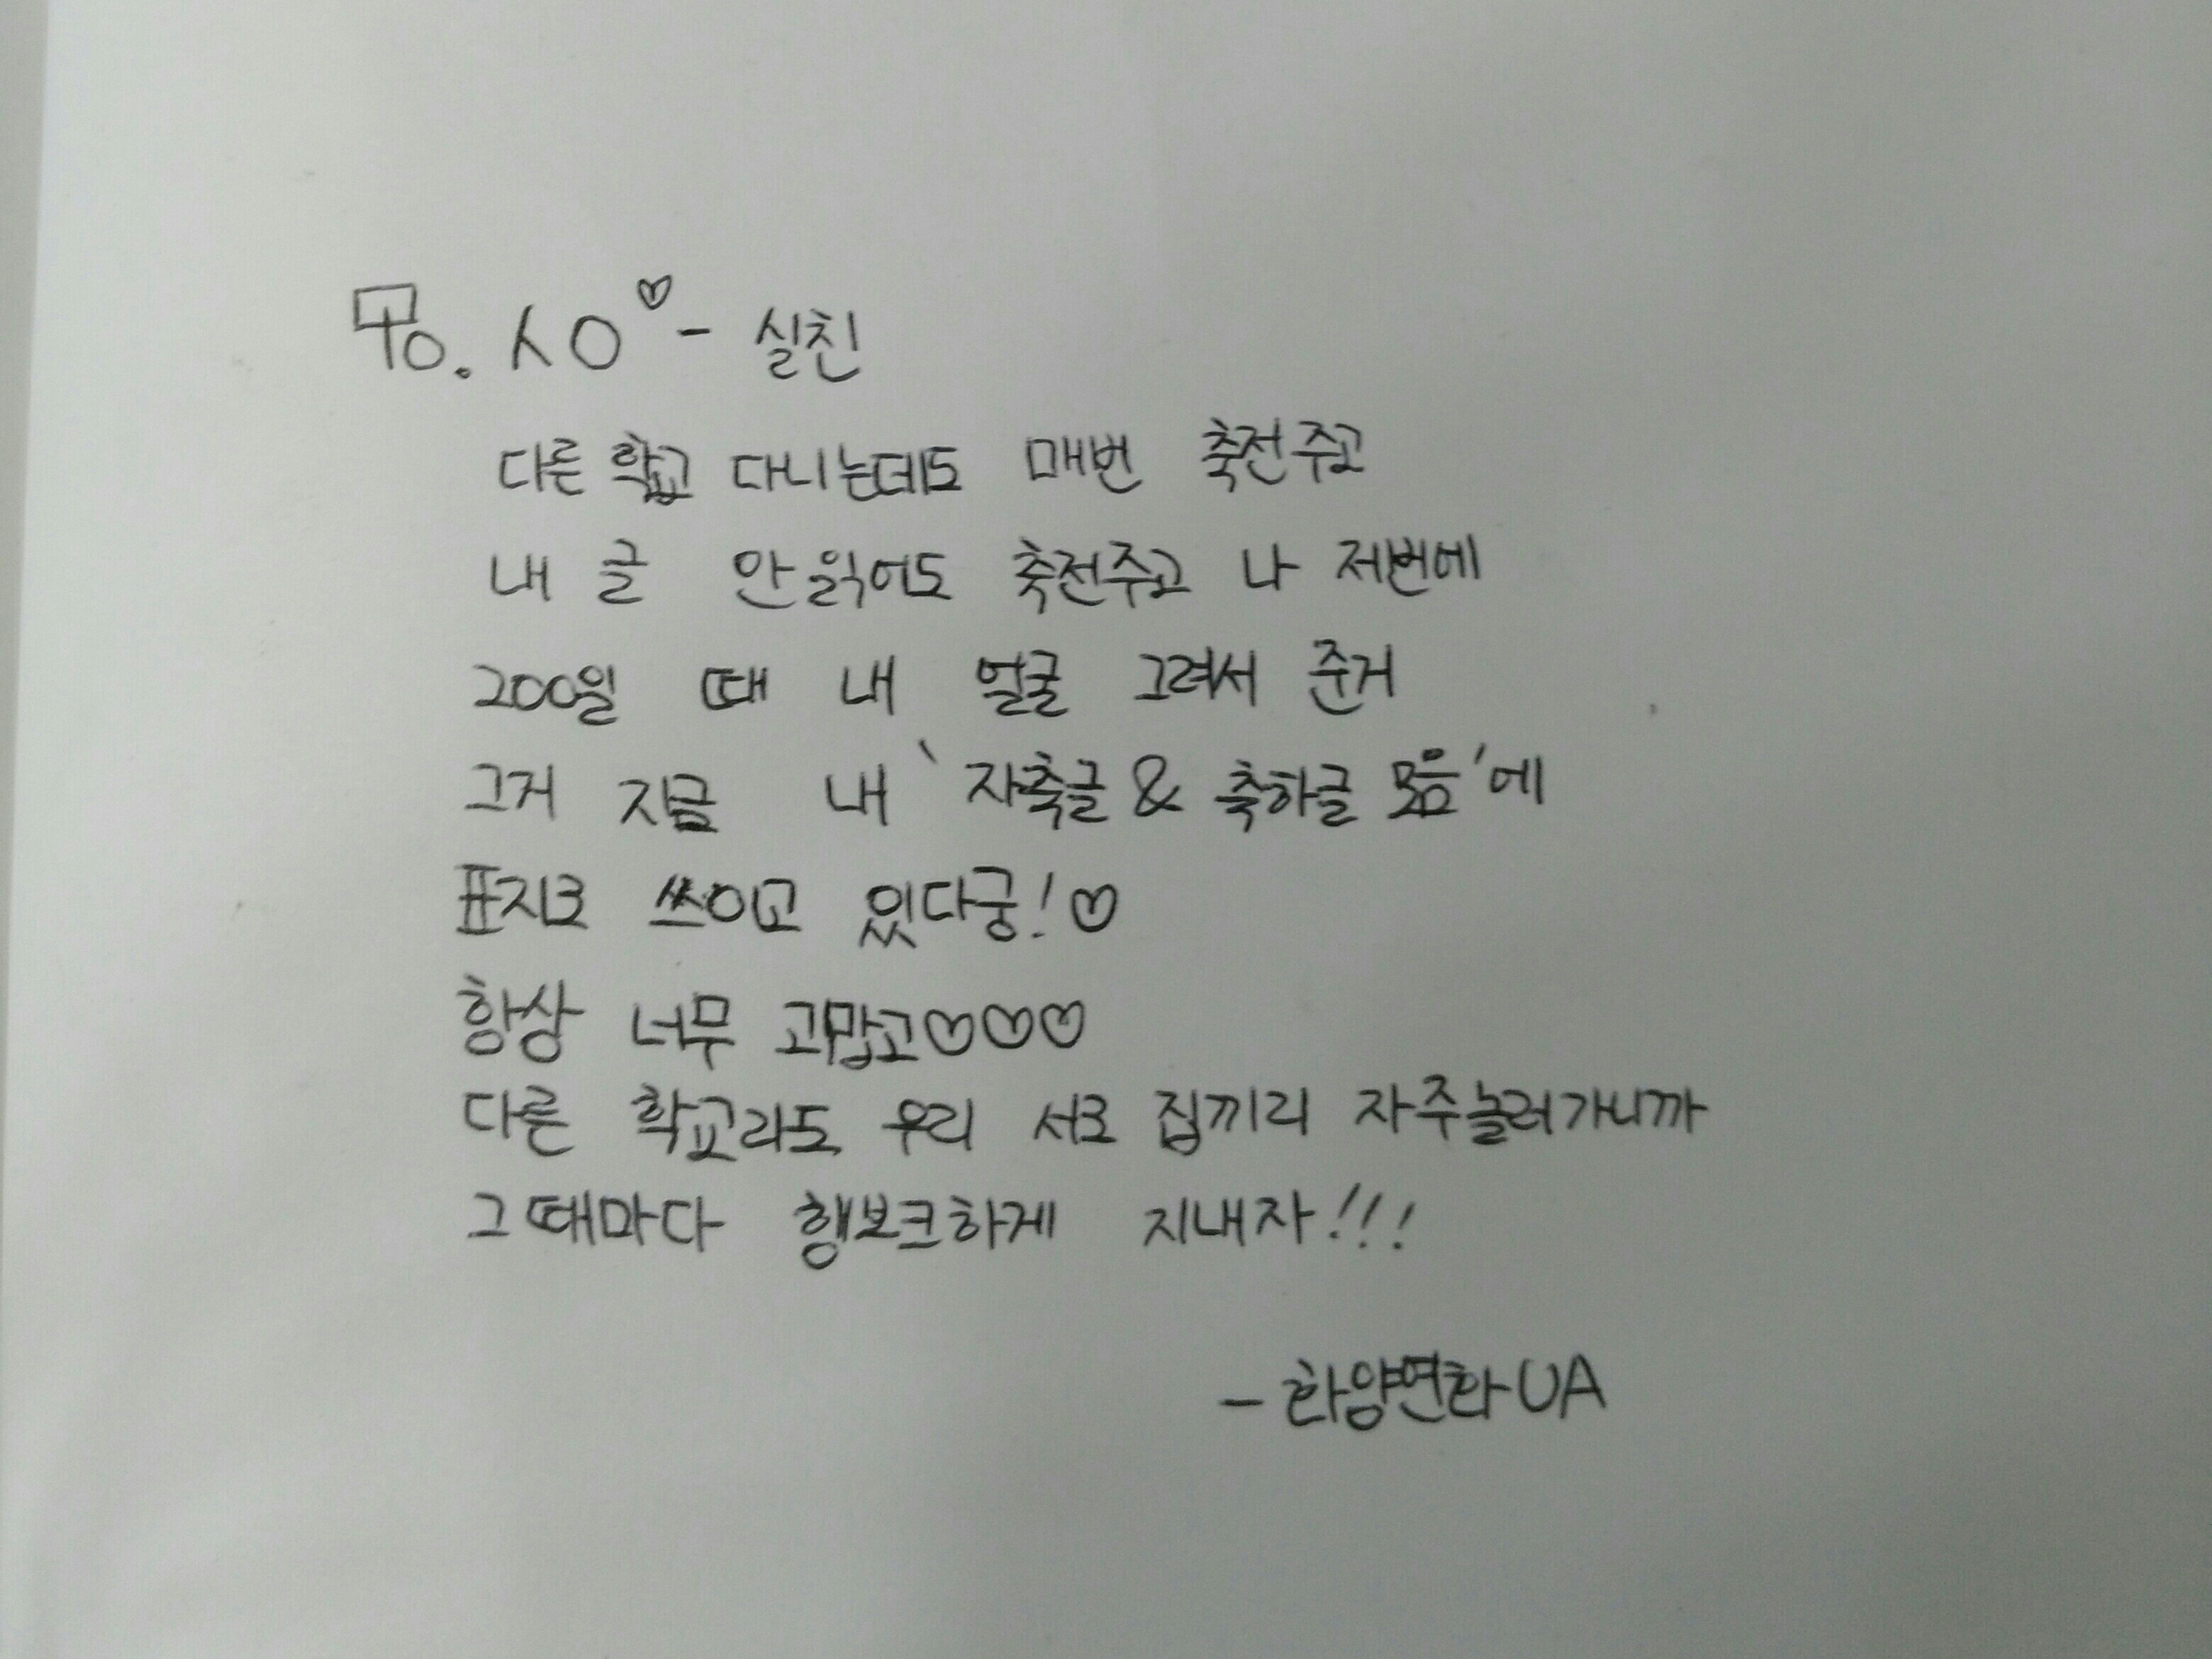 To. ㅅㅇ♡- 실친
다른 학교 다니는데도 매번 축전주고
내 글 안 읽어도 축전주고 나 저번에
200일 때 내 얼굴 그려서 준거
그거 지금 내 '자축글 & 축하글 모음'에
표지로 쓰이고 있다궁!♡
항상 너무 고맙고♡♡♡
다른 학교라도 우리 서로 집끼리 자주놀러가니까
그때마다 행보크하게 지내자!!!
- 화양연화UA